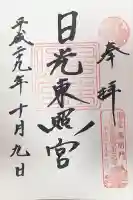 奉拝
日光東照宮
平成二九年十月九日